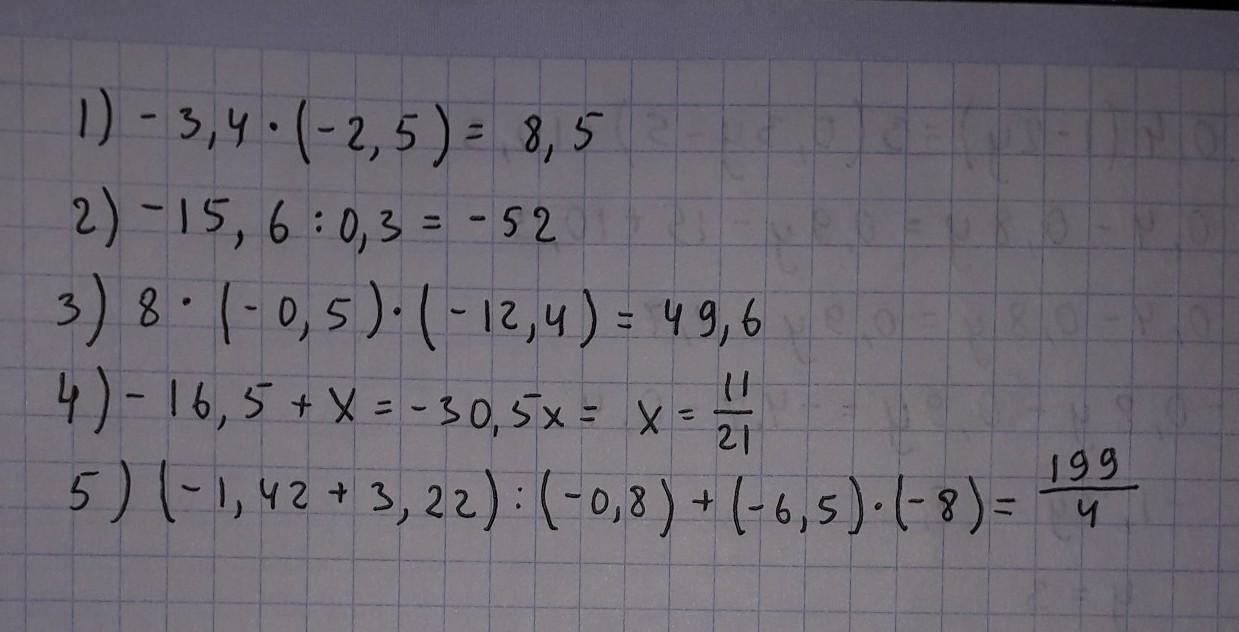 1) - 3,4 · (-2,5) = 8,5
2) -15,6 : 0,3 = -52
3) 8 · (-0,5) · (-12,4) = 49,6
4) - 16,5 + x = -30,5x = x = 11/21
5) (-1,42 + 3,22) : (-0,8) + (-6,5) · (-8) = 199/4